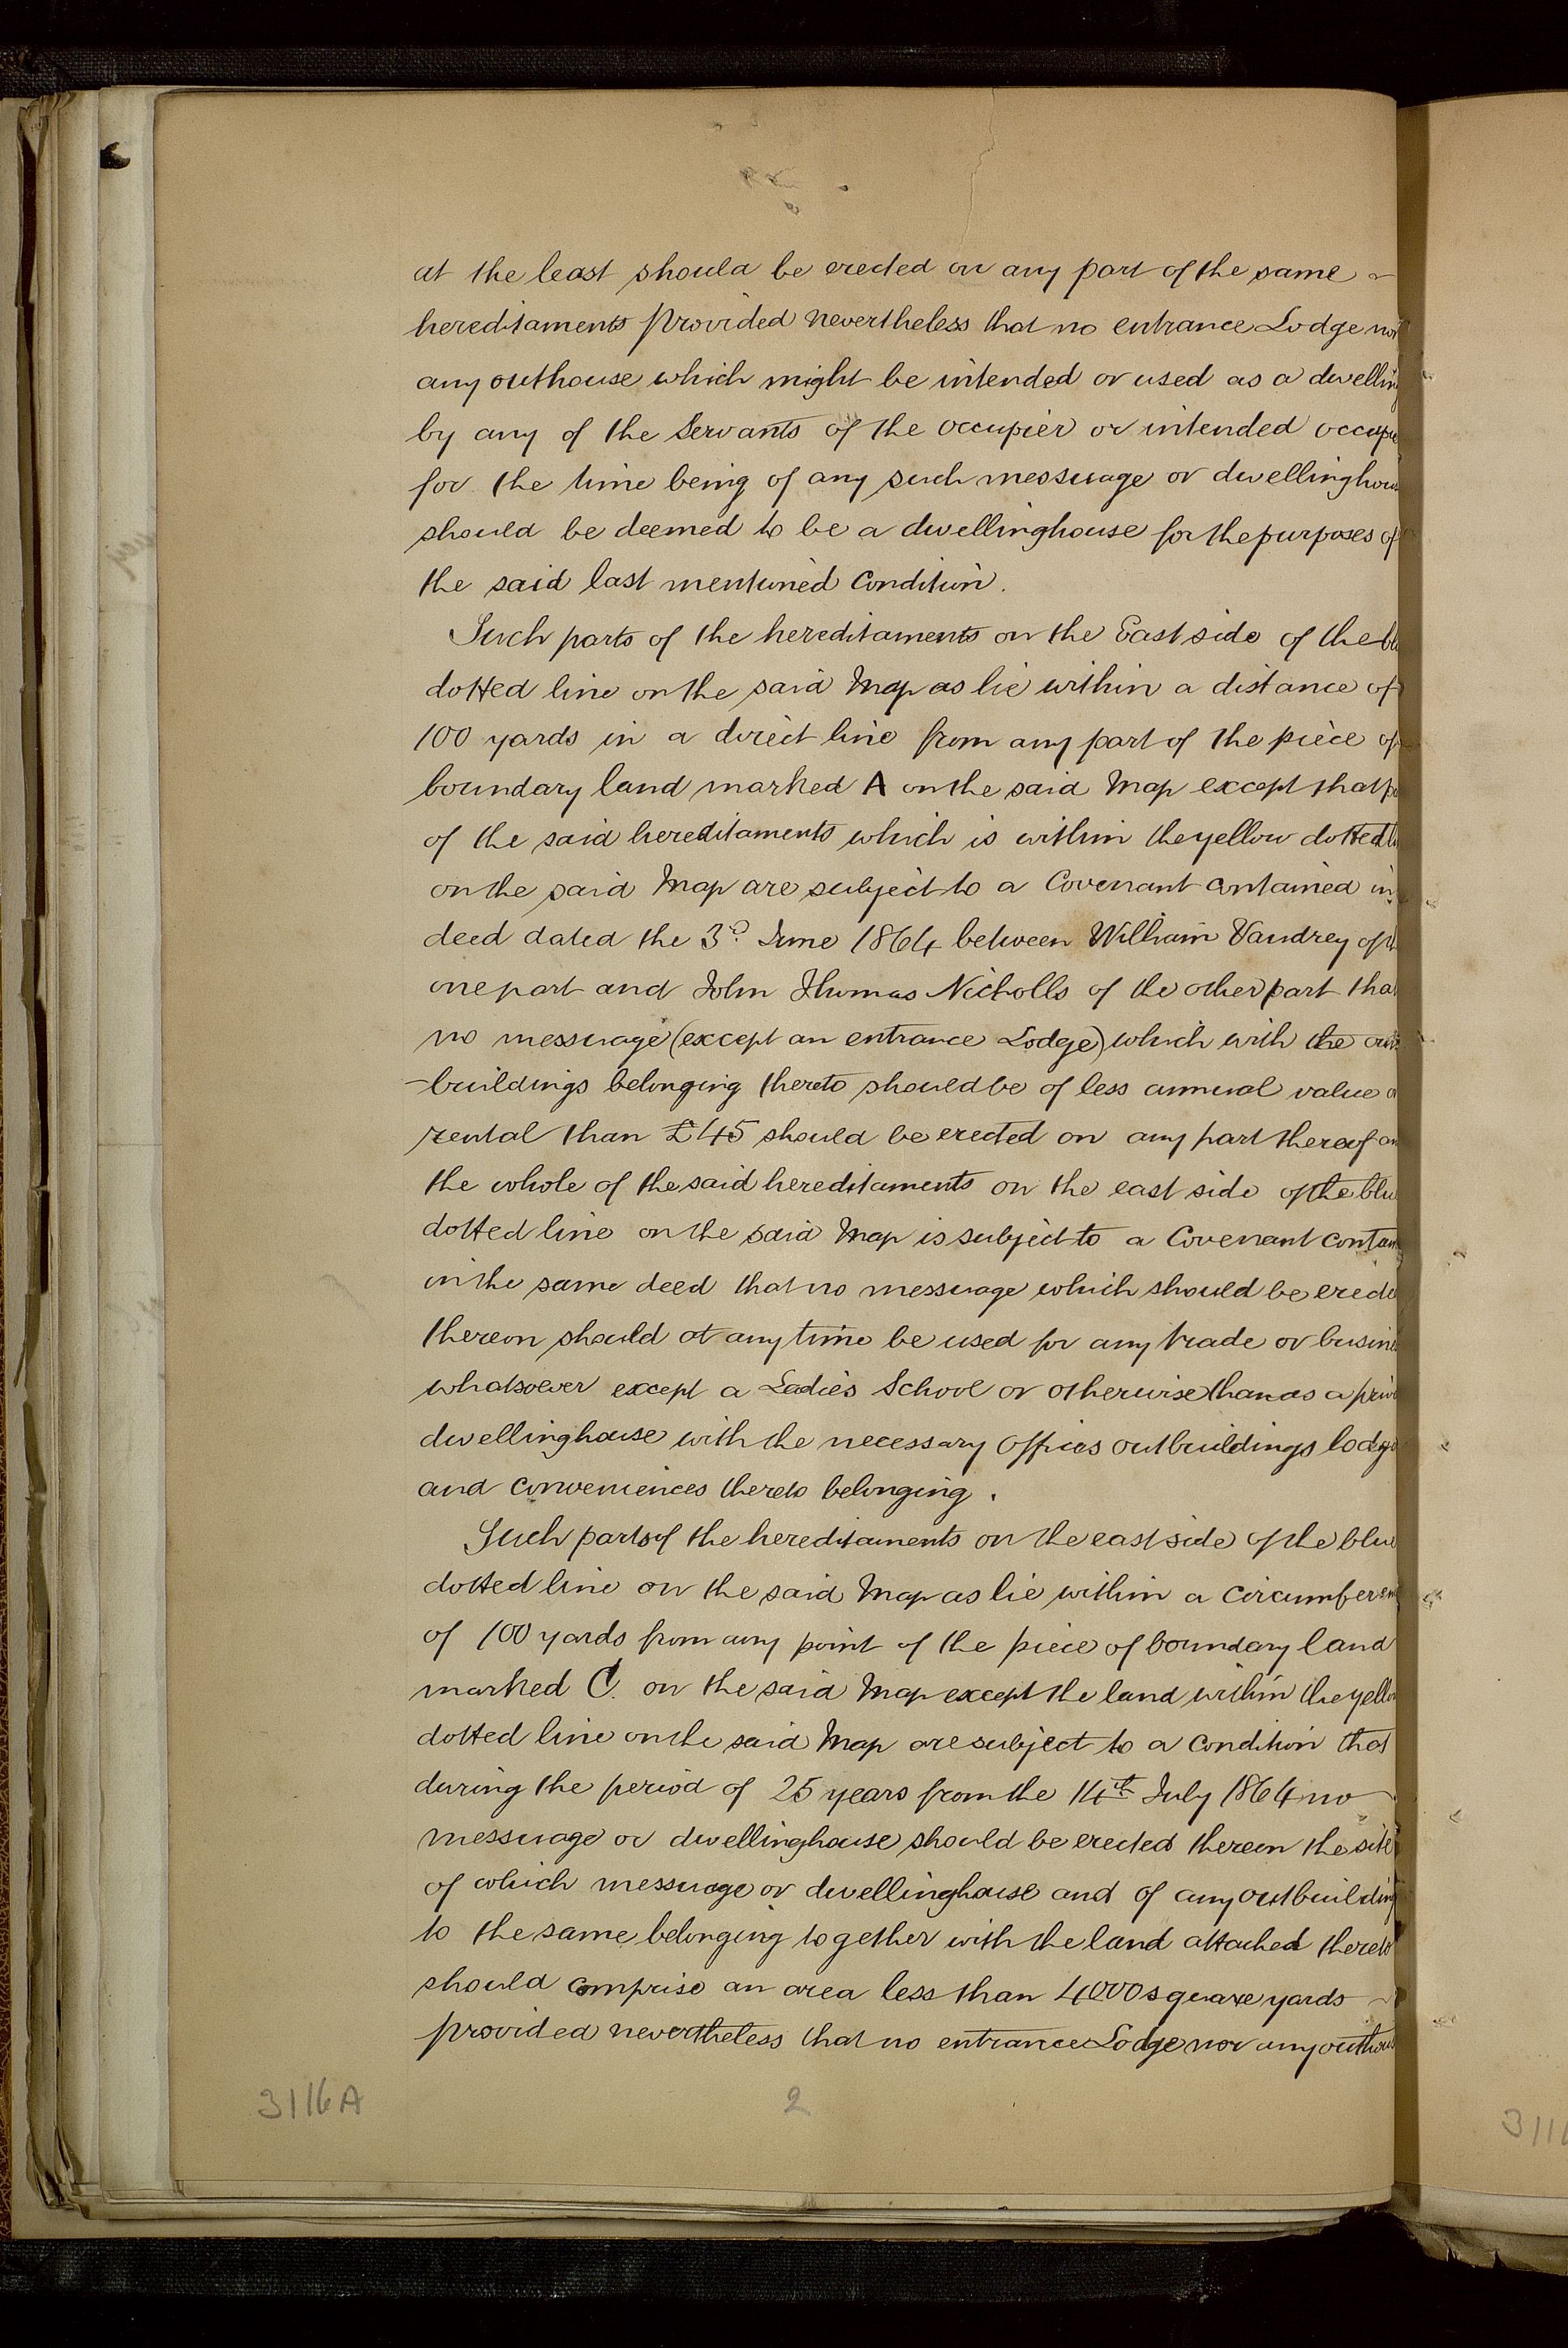 at the least should be erected on any part of the same
hereditaments Provided nevertheless that no entrance Lodge nor
any outhouse which might be intended or used as a dwelling
by any of the Servants of the occupier or intended occupie
for the time being of any such messuage or dwellinghous
should be deemed to be a dwellinghouse for the purposes of
the said last mentioned Condition.
Such parts of the hereditaments on the East side of the bl
dotted line on the said Map as lie within a distance of
100 yards in a direct line from any part of the piece of
boundary land marked A on the said Map except that p
of the said hereditaments which is within the yellow dotted l
on the said Map are subject to a Covenant contained in
deed dated the 3d. June 1864 between William Vaudrey of th
one part and John Thomas Nicholls of the other part that
no messuage (except an entrance Lodge) which with the out
-buildings belonging thereto should be of less annual value o
rental than £45 should be erected on any part thereof an
the whole of the said hereditaments on the east side of the blu
dotted line on the said Map is subject to a Covenant contain
in the same deed that no messuage which should be erecte
thereon should at any time be used for any trade or busine
whatsoever except a Ladies School or otherwise than as a priv
dwellinghouse with the necessary offices outbuildings lodge
and conveniences thereto belonging.
Such parts of the hereditaments on the east side of the blue
dotted line on the said Map as lie within a circumferen
of 100 yards from any point of the piece of boundary land
marked C. on the said Map except the land within the yello
dotted line on the said Map are subject to a condition that
during the period of 25 years from the 14th July 1864 no
messuage or dwellinghouse should be erected thereon the site
of which messuage or dwellinghouse and of any outbuilding
to the same belonging together with the land attached thereto
should comprise an area less than 4000 square yards
provided nevertheless that no entrance Lodge nor any outhous
3116A
2
311